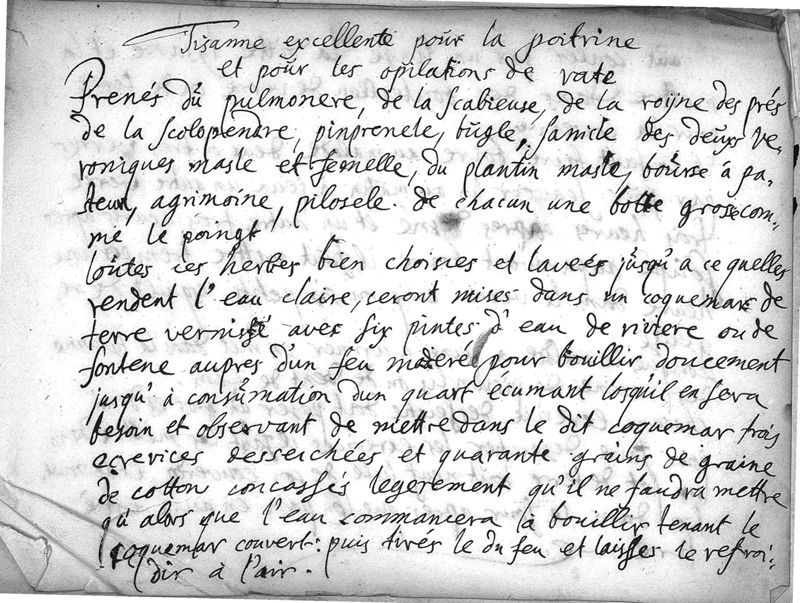 Tisanne excellente pour la poitrine
et pour les opilations de rate
Prenés du pulmonere, de la scabieuse, de la royne des prés
de la scolopendre, pinprenele, bugle, sanicle des deux ve-
roniques masle et femelle, du plantin masle, bourse à pa-
steur, agrimoine, pilosele. de chacun une botte grosse com-
me le poingt
toutes ces herbes bien choisies et lavees jusqu'a ce quelles
rendent l'eau claire, ceront mises dans un coquemar de
terre vernissé avec six pintes d'eau de riviere ou de
fontene aupres d'un feu moderé pour bouillir doucement
jusqu'à consumation dun quart écumant losquil en sera
besoin et observant de mettre dans le dit coquemar trois
ecrevices desseichées et quarante grains de graine
de cotton concassés legerement qu'il ne faudra mettre
qu'alors que l'eau commancera à bouillir tenant le
coquemar couvert: puis tirés le du feu et laisses le refroi-
dir à l'air.